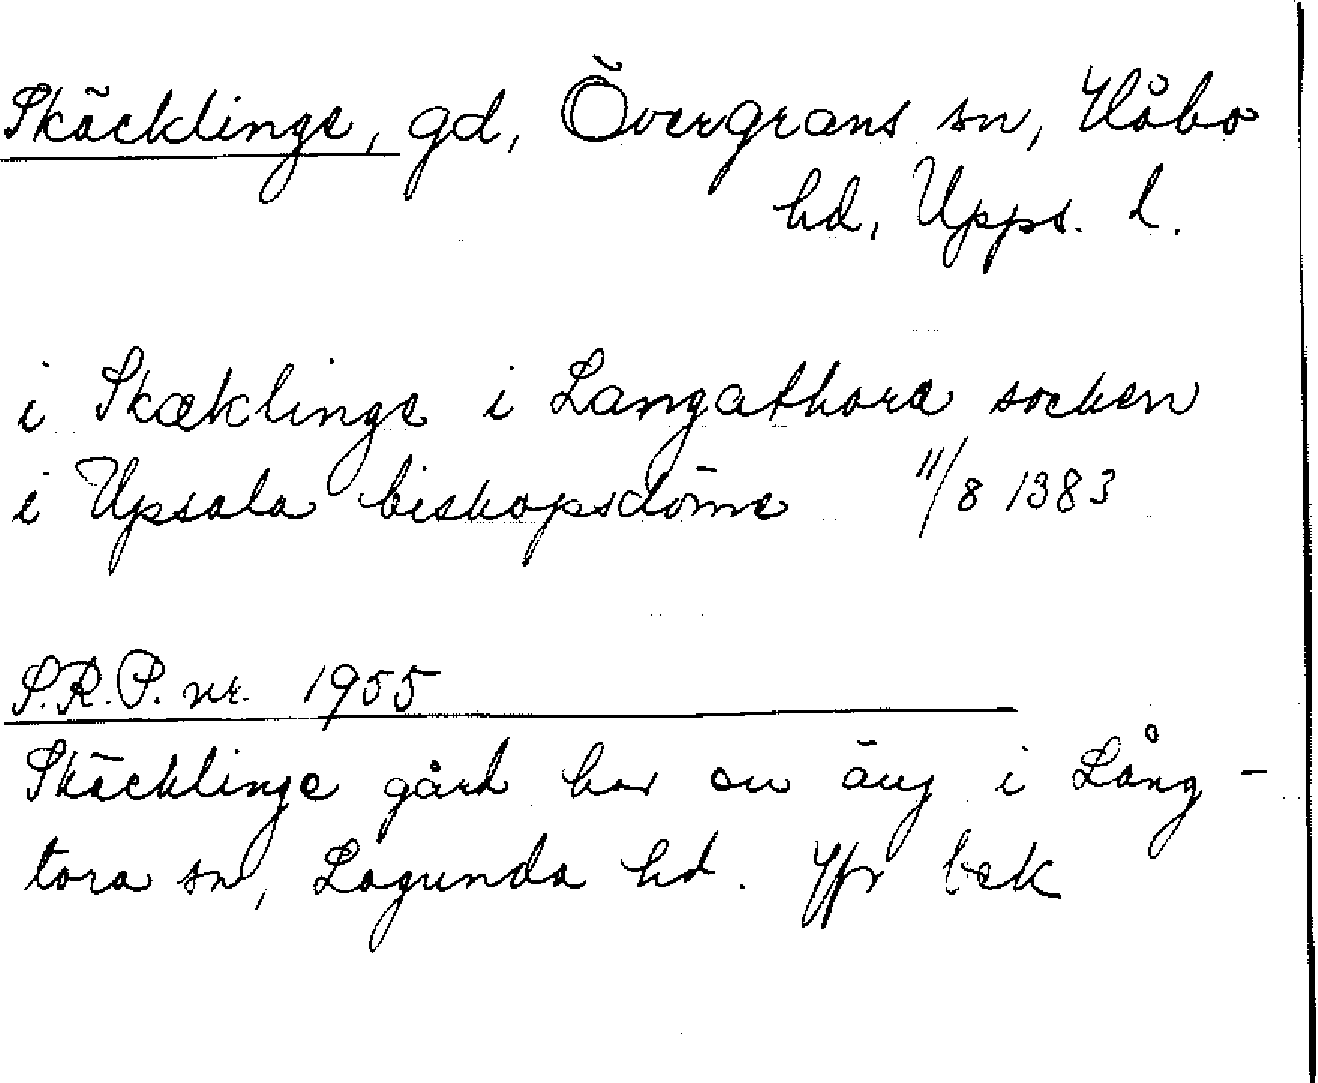 Skäcklinge, gd, Övergrans sn, Håbo
hd, Upps. l.
i Skæklinge i Langathora socken
i Upsala biskopsdöme 11/8 1383
S.R.P. nr. 1955
Skäcklinge gård har en äng i Lång-
tora sn, Lagunda hd. Jfr bek